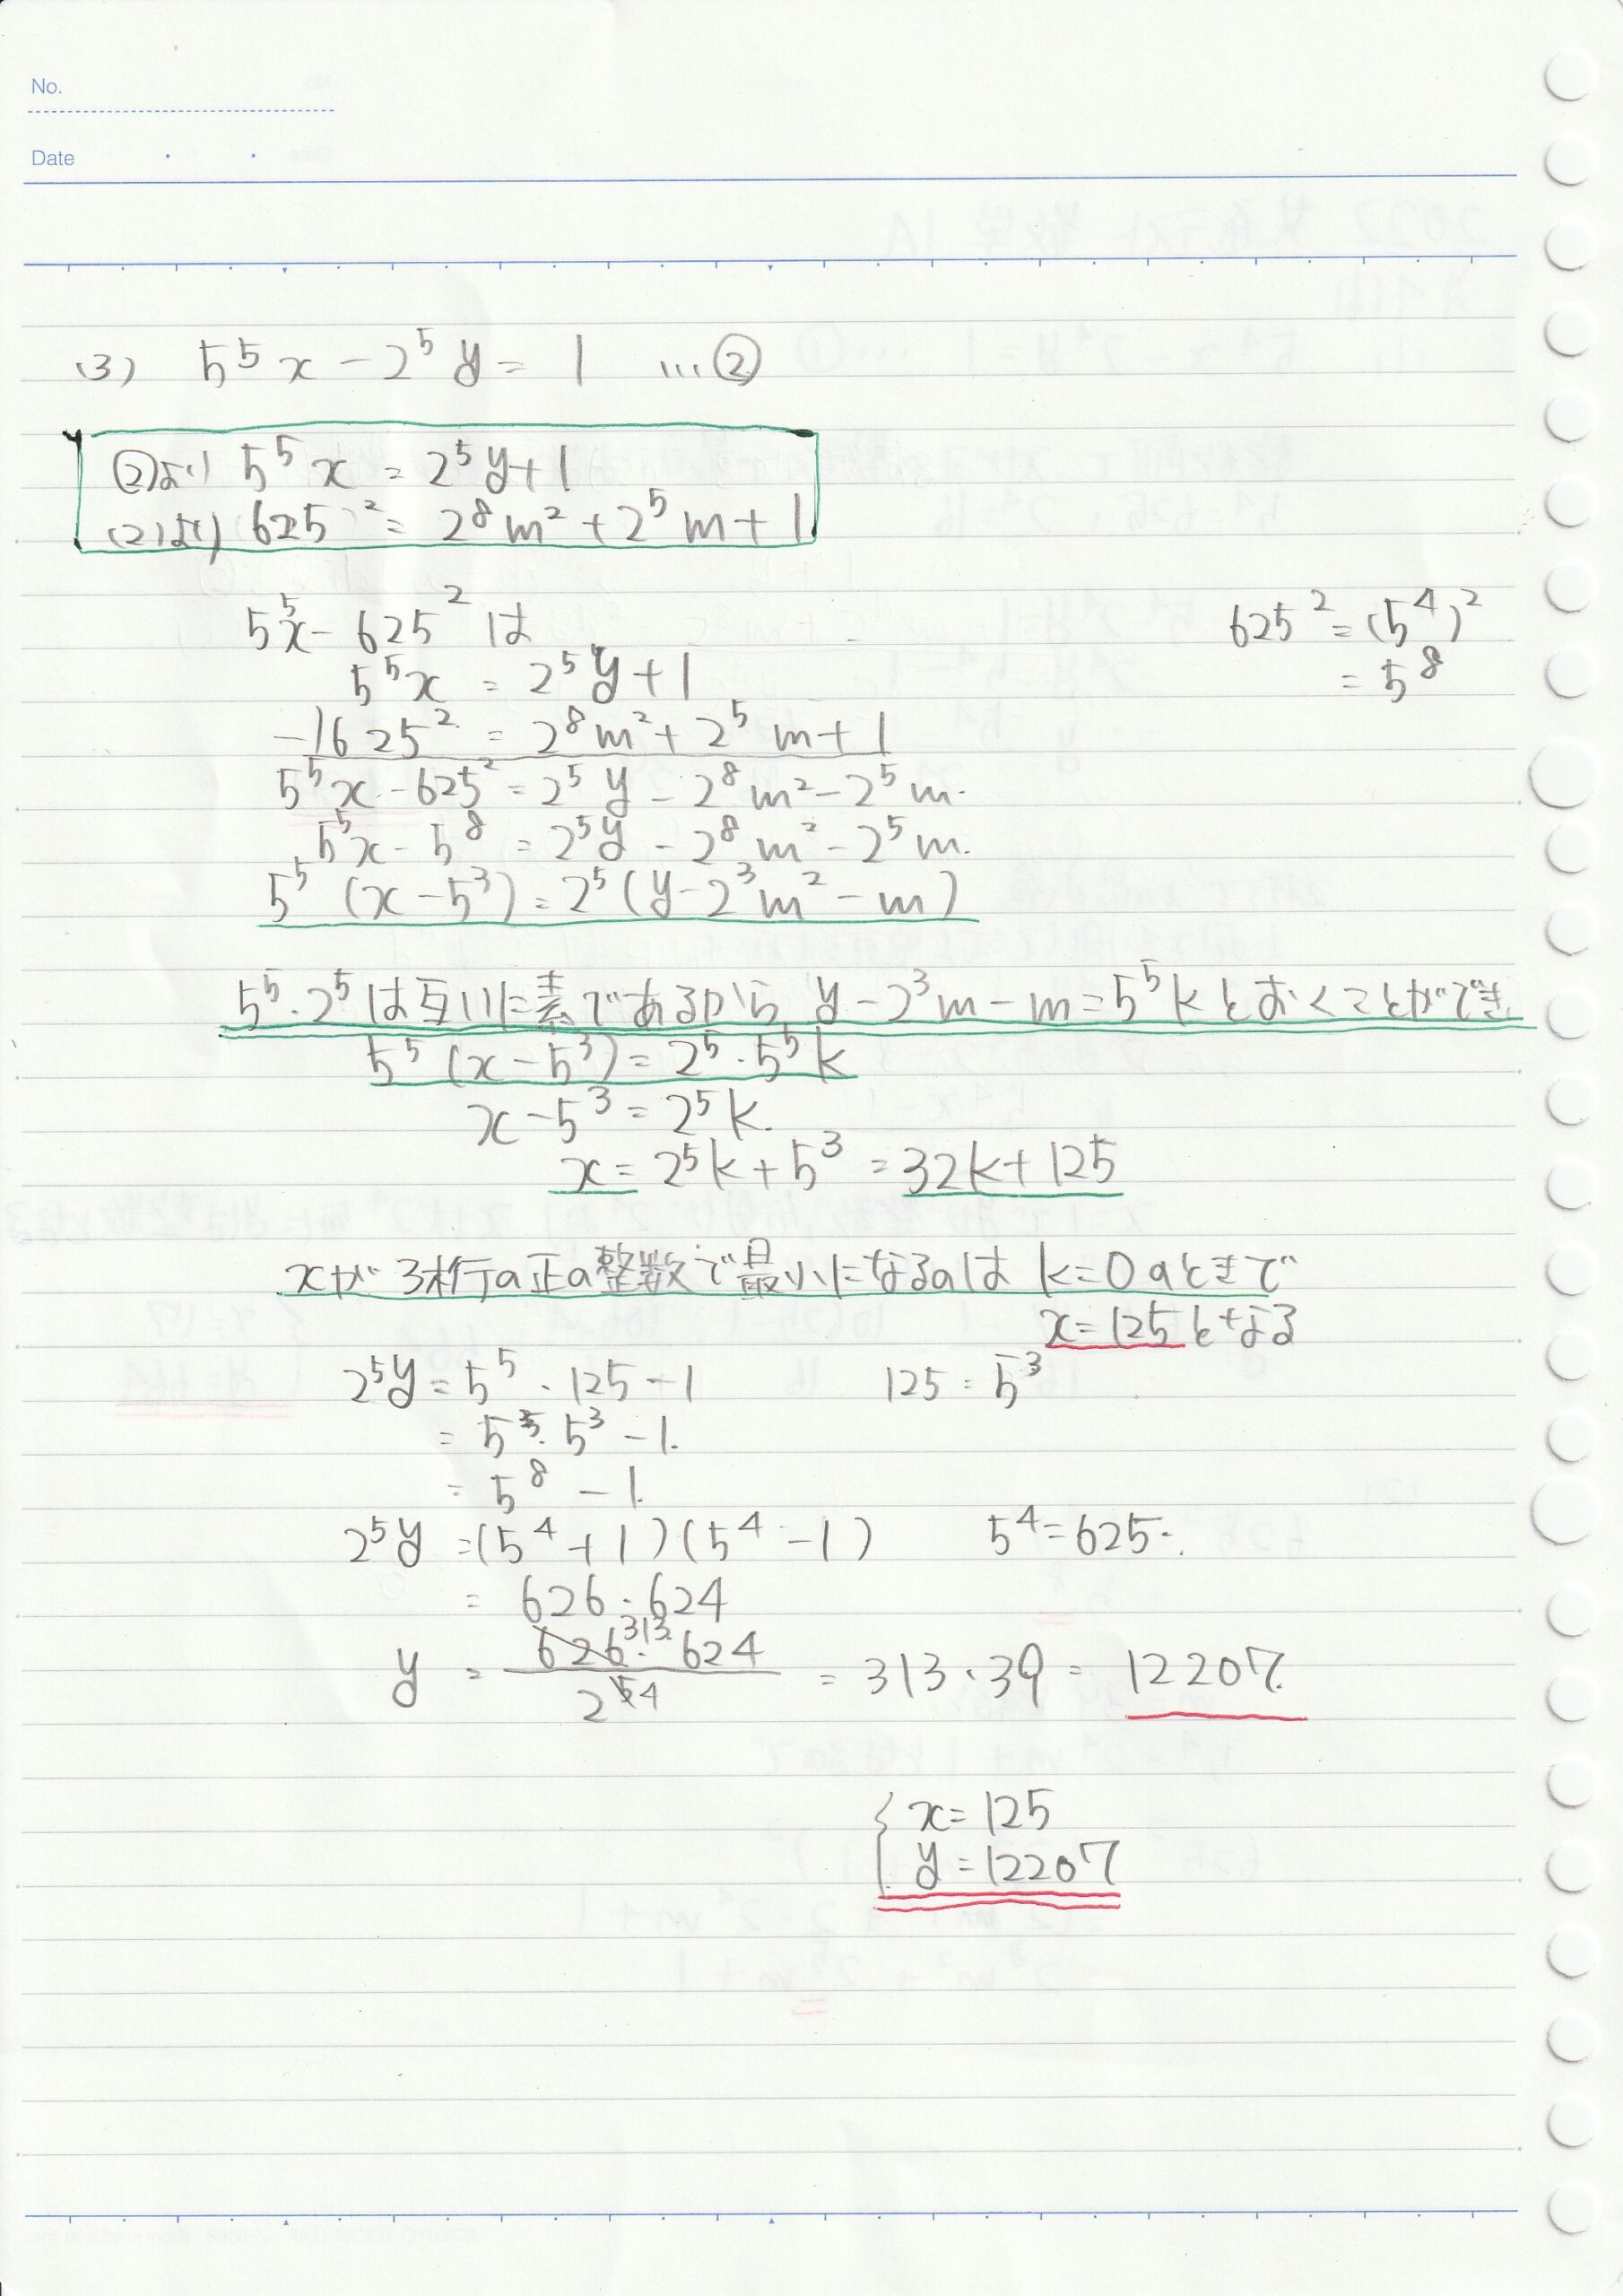 No.
Date
(3) 5⁵x - 2⁵y = 1 …②
②より 5⁵x = 2⁵y+1
(2)より 625² = 2⁸m² + 2⁵m + 1
5⁵x - 625² は
625² = (5⁴)²
= 5⁸
5⁵x = 2⁵y + 1
-) 625² = 2⁸m² + 2⁵m + 1
5⁵x - 625² = 2⁵y - 2⁸m² - 2⁵m.
5⁵x - 5⁸ = 2⁵y - 2⁸m² - 2⁵m.
5⁵(x - 5³) = 2⁵(y - 2³m² - m)
5⁵.2⁵は互いに素であるから y - 2³m - m = 5⁵kとおくことができ.
5⁵(x - 5³) = 2⁵・5⁵k
x - 5³ = 2⁵k.
x = 2⁵k + 5³ = 32k + 125
xが3桁の正の整数で最小になるのは k=0のときで
x = 125となる
2⁵y = 5⁵・125 - 1 125 = 5³
= 5⁵・5³ - 1.
= 5⁸ - 1.
2⁵y = (5⁴ + 1)(5⁴ - 1) 5⁴ = 625.
= 626・624
313
y = 626・624 / 2⁵ ⁴ = 313・39 = 12207.
{ x = 125
y = 12207